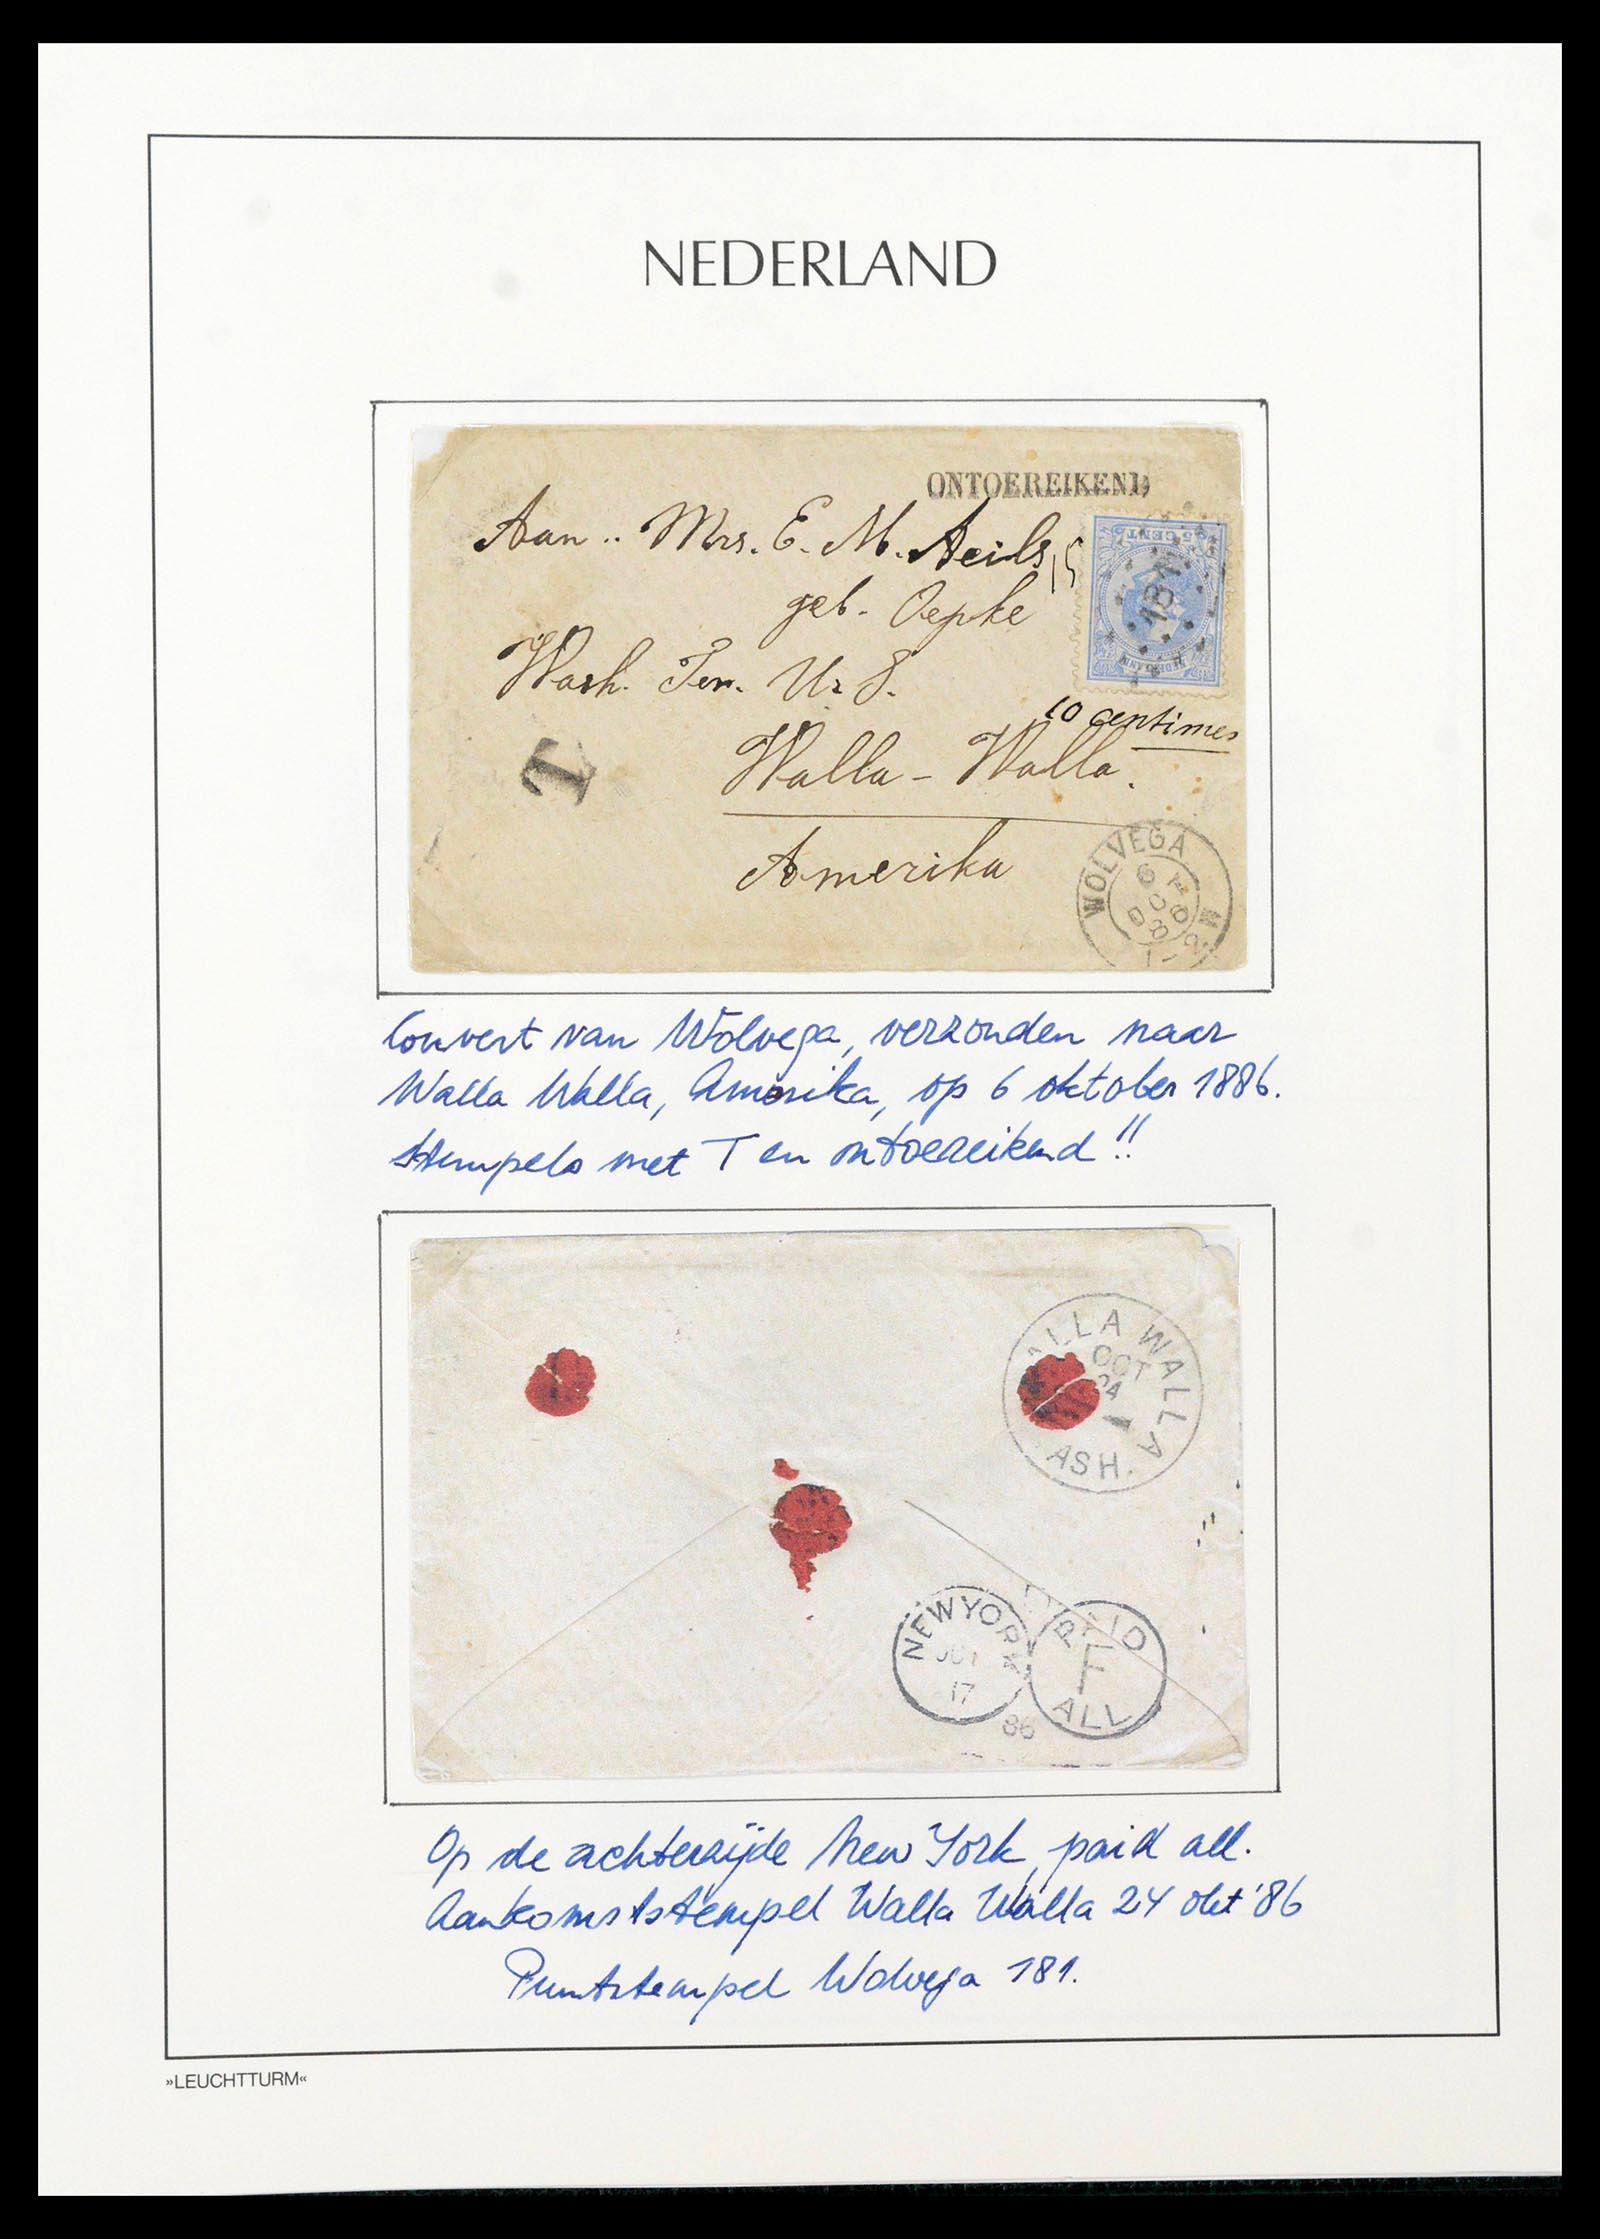 NEDERLAND
ONTOEREIKEND
Aan .. Mrs. E. M. Aeils
15
geb. Oepke
Wash. Ter. U. S.
5 CENT
181
NEDERLAND
10 centimes
Walla - Walla.
T
Amerika
WOLVEGA
6
Couvert van Wolvega, verzonden naar
Walla Walla, Amerika, op 6 oktober 1886.
Stempels met T en ontoereikend!!
ALLA WALLA
OCT
24
ASH.
NEW YORK
OCT
17
86
PAID
F
ALL
Op de achterzijde New York, paid all.
Aankomststempel Walla Walla 24 okt '86
Puntstempel Wolvega 181.
»LEUCHTTURM«